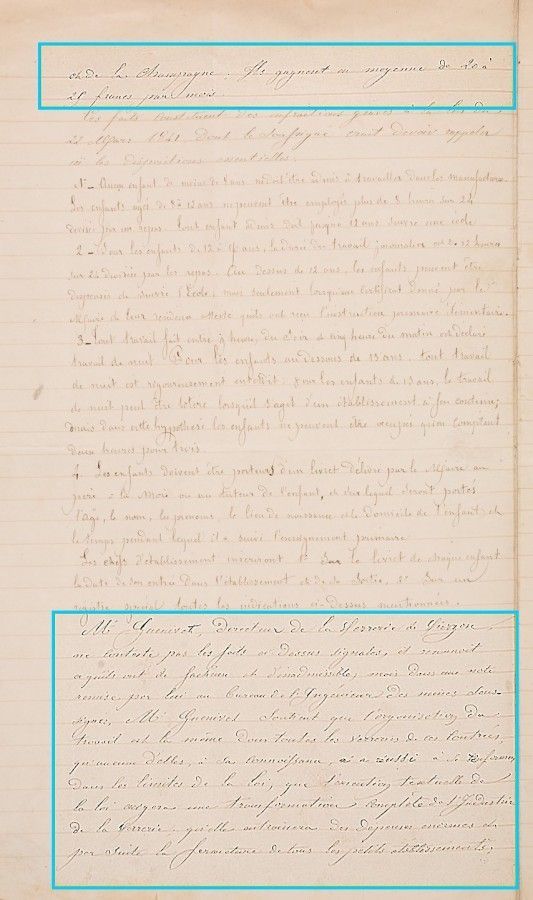 et de la Champagne. Ils gagnent en moyenne de 20 à
25 francs par mois
Ces faits constituent des infractions graves à la loi du
22 Mars 1841, dont le Soussigné croit devoir rappeler
ici les dispositions essentielles.
1° - Aucun enfant de moins de 8 ans ne doit être admis à travailler dans les manufactures.
Les enfants agés de 8 à 12 ans ne peuvent être employés plus de 8 heures sur 24
divisées par un repos. Tout enfant admis doit jusqu'à 12 ans suivre une école
2 - Pour les enfants de 12 à 16 ans, la durée du travail journalier est de 12 heures
sur 24 divisées par les repos. Au dessus de 12 ans, les enfants peuvent être
dispensés de suivre l'École, mais seulement lorsqu'un certificat donné par le
Maire de leur résidence atteste qu'ils ont reçu l'instruction primaire élémentaire.
3 - Tout travail fait entre 9 heures du soir et cinq heures du matin est déclaré
travail de nuit. Pour les enfants au dessous de 13 ans, tout travail
de nuit est rigoureusement interdit; pour les enfants de 13 ans, le travail
de nuit peut être toléré lorsqu'il s'agit d'un établissement à feu continu;
mais dans cette hypothèse les enfants ne peuvent être occupés qu'en comptant
deux heures pour trois.
4 - Les enfants doivent être porteurs d'un livret délivré par le Maire au
père, à la Mère ou au tuteur de l'enfant, et sur lequel seront portés
l'age, le nom, les prénoms, le lieu de naissance et le domicile de l'enfant, et
le temps pendant lequel il a suivi l'enseignement primaire.
Les chefs d'établissement inscriront 1° Sur le livret de chaque enfant
la date de son entrée dans l'établissement et de sa sortie, 2° Sur un
registre spécial toutes les indications ci-dessus mentionnées.
Mr Guenivet, Directeur de la Verrerie de Vierzon
ne conteste pas les faits ci dessus signalés, et reconnait
ce qu'ils ont de facheux et d'inadmissible; mais dans une note
remise par lui au bureau de l'Ingénieur des mines sous-
signé, Mr Guenivet soutient que l'organisation du
travail est la même dans toutes les verreries de ces contrées,
qu'aucune d'elles, à sa connaissance, n'a réussi à se renfermer
dans les limites de la loi, que l'exécution textuelle de
la loi exigera une transformation complète de l'Industrie
de la Verrerie, qu'elle entrainera des dépenses énormes et
par suite la fermeture de tous les petits établissements.